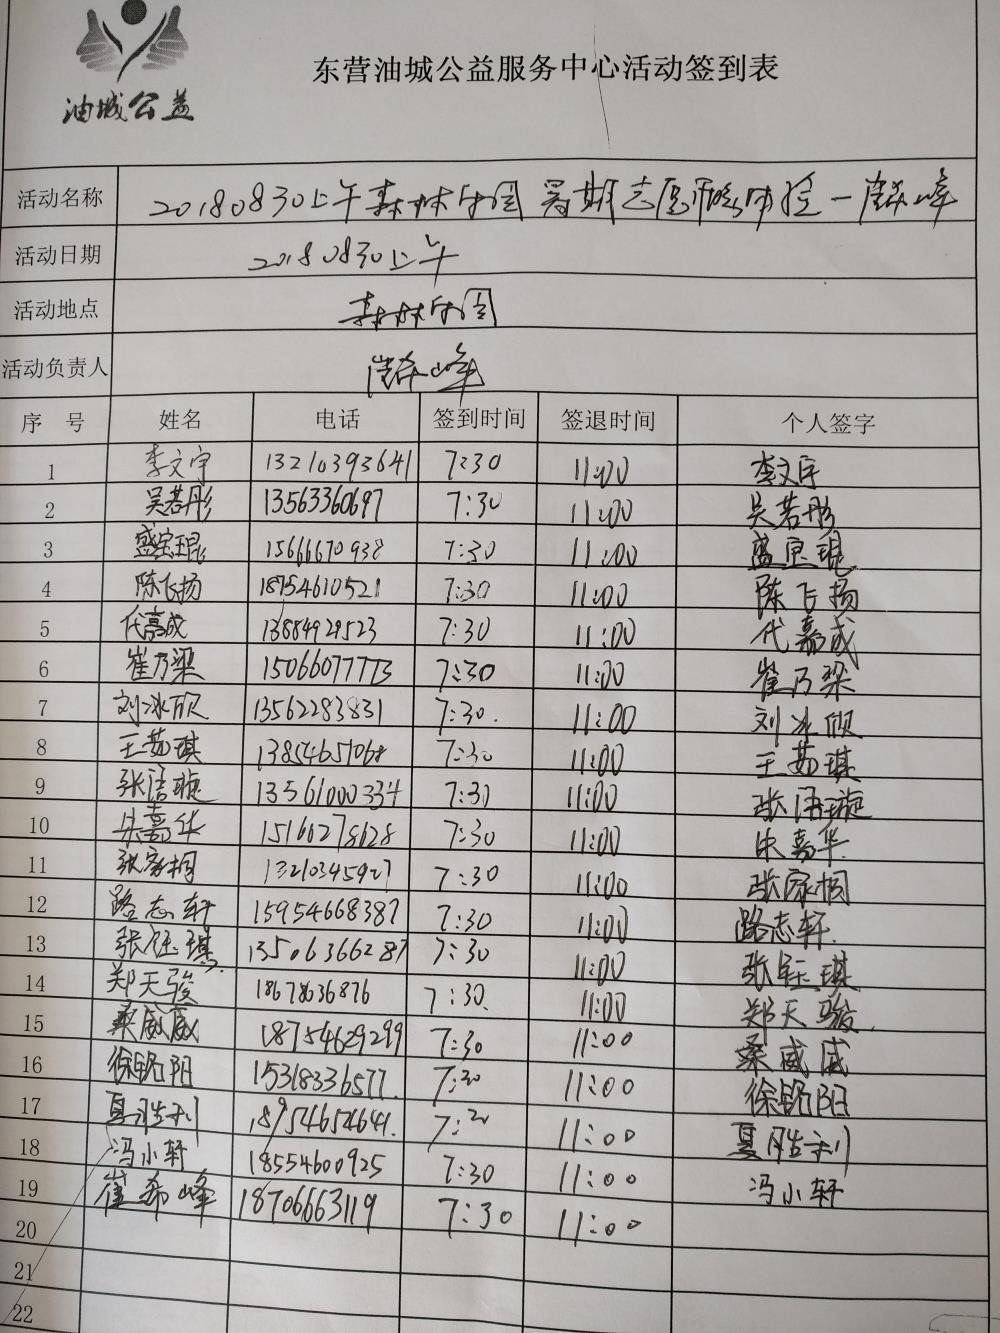 油城公益
东营油城公益服务中心活动签到表
活动名称 20180830上午森林公园暑期志愿服务体验一崔希峰
活动日期 20180830上午
活动地点 森林公园
活动负责人 崔希峰
序 号 姓名 电话 签到时间 签退时间 个人签字
1 李文宇 13210393641 7:30 11:00 李文宇
2 吴若彤 13563360697 7:30 11:00 吴若彤
3 盛宝琨 15666670938 7:30 11:00 盛宝琨
4 陈飞扬 18754610521 7:30 11:00 陈飞扬
5 代嘉成 13884929523 7:30 11:00 代嘉成
6 崔乃梁 15066077773 7:30 11:00 崔乃梁
7 刘冰欣 13562283831 7:30. 11:00 刘冰欣
8 王茹琪 13854651068 7:30 11:00 王茹琪
9 张洁璇 13561000334 7:30 11:00 张洁璇
10 朱嘉华 15166278628 7:30 11:00 朱嘉华.
11 张家桐 13210345927 7:30 11:00 张家桐
12 路志轩 15954668387 7:30 11:00 路志轩.
13 张钰琪 13506366287 7:30 11:00 张钰琪
14 郑天骏 18678636876 7:30. 11:00 郑天骏.
15 桑威威 18754629299 7:30 11:00 桑威威
16 徐铭阳 15318336577. 7:30 11:00 徐铭阳
17 夏胜利 18954654641. 7:30 11:00 夏胜利
18 冯小轩 18554600925 7:30 11:00 冯小轩
19 崔希峰 18706663119 7:30 11:00
20
21
22